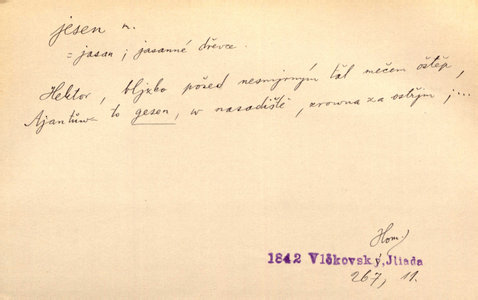 jesen m.
= jasan; jasanné dřevce.
Hektor, bljzko před nesmjrným ťal mečem oštěp,
Ajantůw to gesen, w nasadiště, zrowna za ostřjm; ...
Hom.
1842 Vlčkovský, Iliada
267, 11.